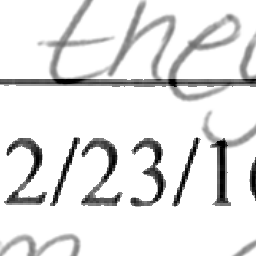 they
2/23/1